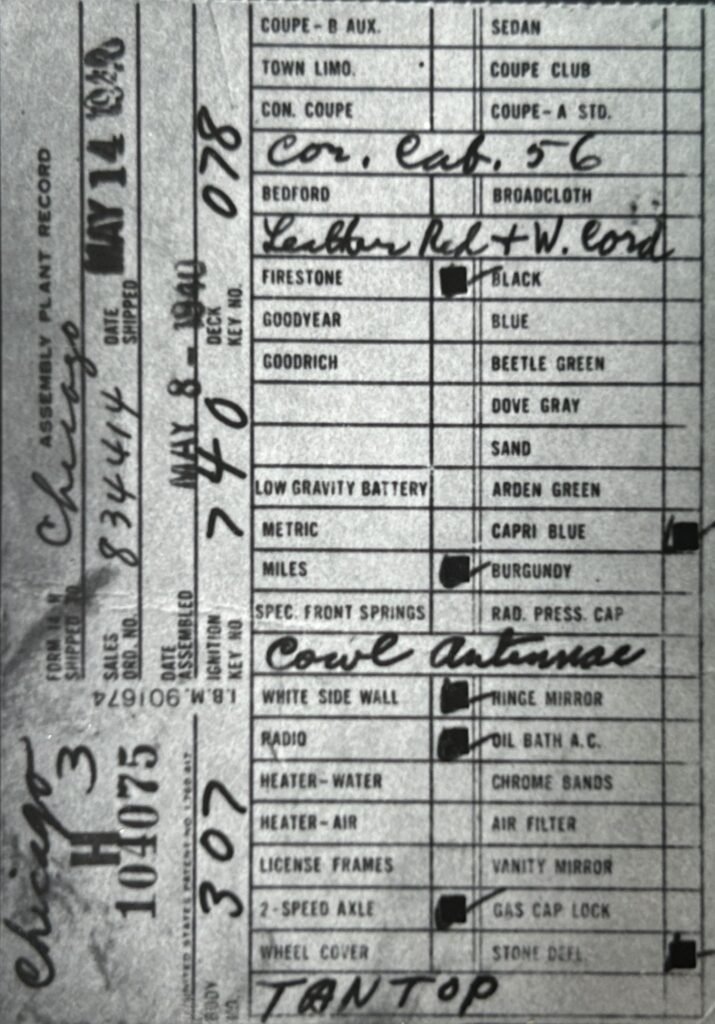 ASSEMBLY PLANT RECORD
FORM 14 H
SHIPPED TO Chicago
SALES ORD. NO. 834414 DATE SHIPPED MAY 14 1940
DATE ASSEMBLED MAY 8 - 1940
IGNITION KEY NO. 740 DECK KEY NO. 078
I.B.M. 901674
Chicago
H 3
104075
UNITED STATES PATENT NO. 1,780,817
BODY NO. 307
COUPE-B AUX. SEDAN
TOWN LIMO. COUPE CLUB
CON. COUPE COUPE-A STD.
Con. Cab. 56
BEDFORD BROADCLOTH
Leather Red + W. Cord
FIRESTONE BLACK
GOODYEAR BLUE
GOODRICH BEETLE GREEN
DOVE GRAY
SAND
LOW GRAVITY BATTERY ARDEN GREEN
METRIC CAPRI BLUE
MILES BURGUNDY
SPEC. FRONT SPRINGS RAD. PRESS. CAP
Cowl Antennae
WHITE SIDE WALL HINGE MIRROR
RADIO OIL BATH A.C.
HEATER-WATER CHROME BANDS
HEATER-AIR AIR FILTER
LICENSE FRAMES VANITY MIRROR
2-SPEED AXLE GAS CAP LOCK
WHEEL COVER STONE DEFL.
TAN TOP